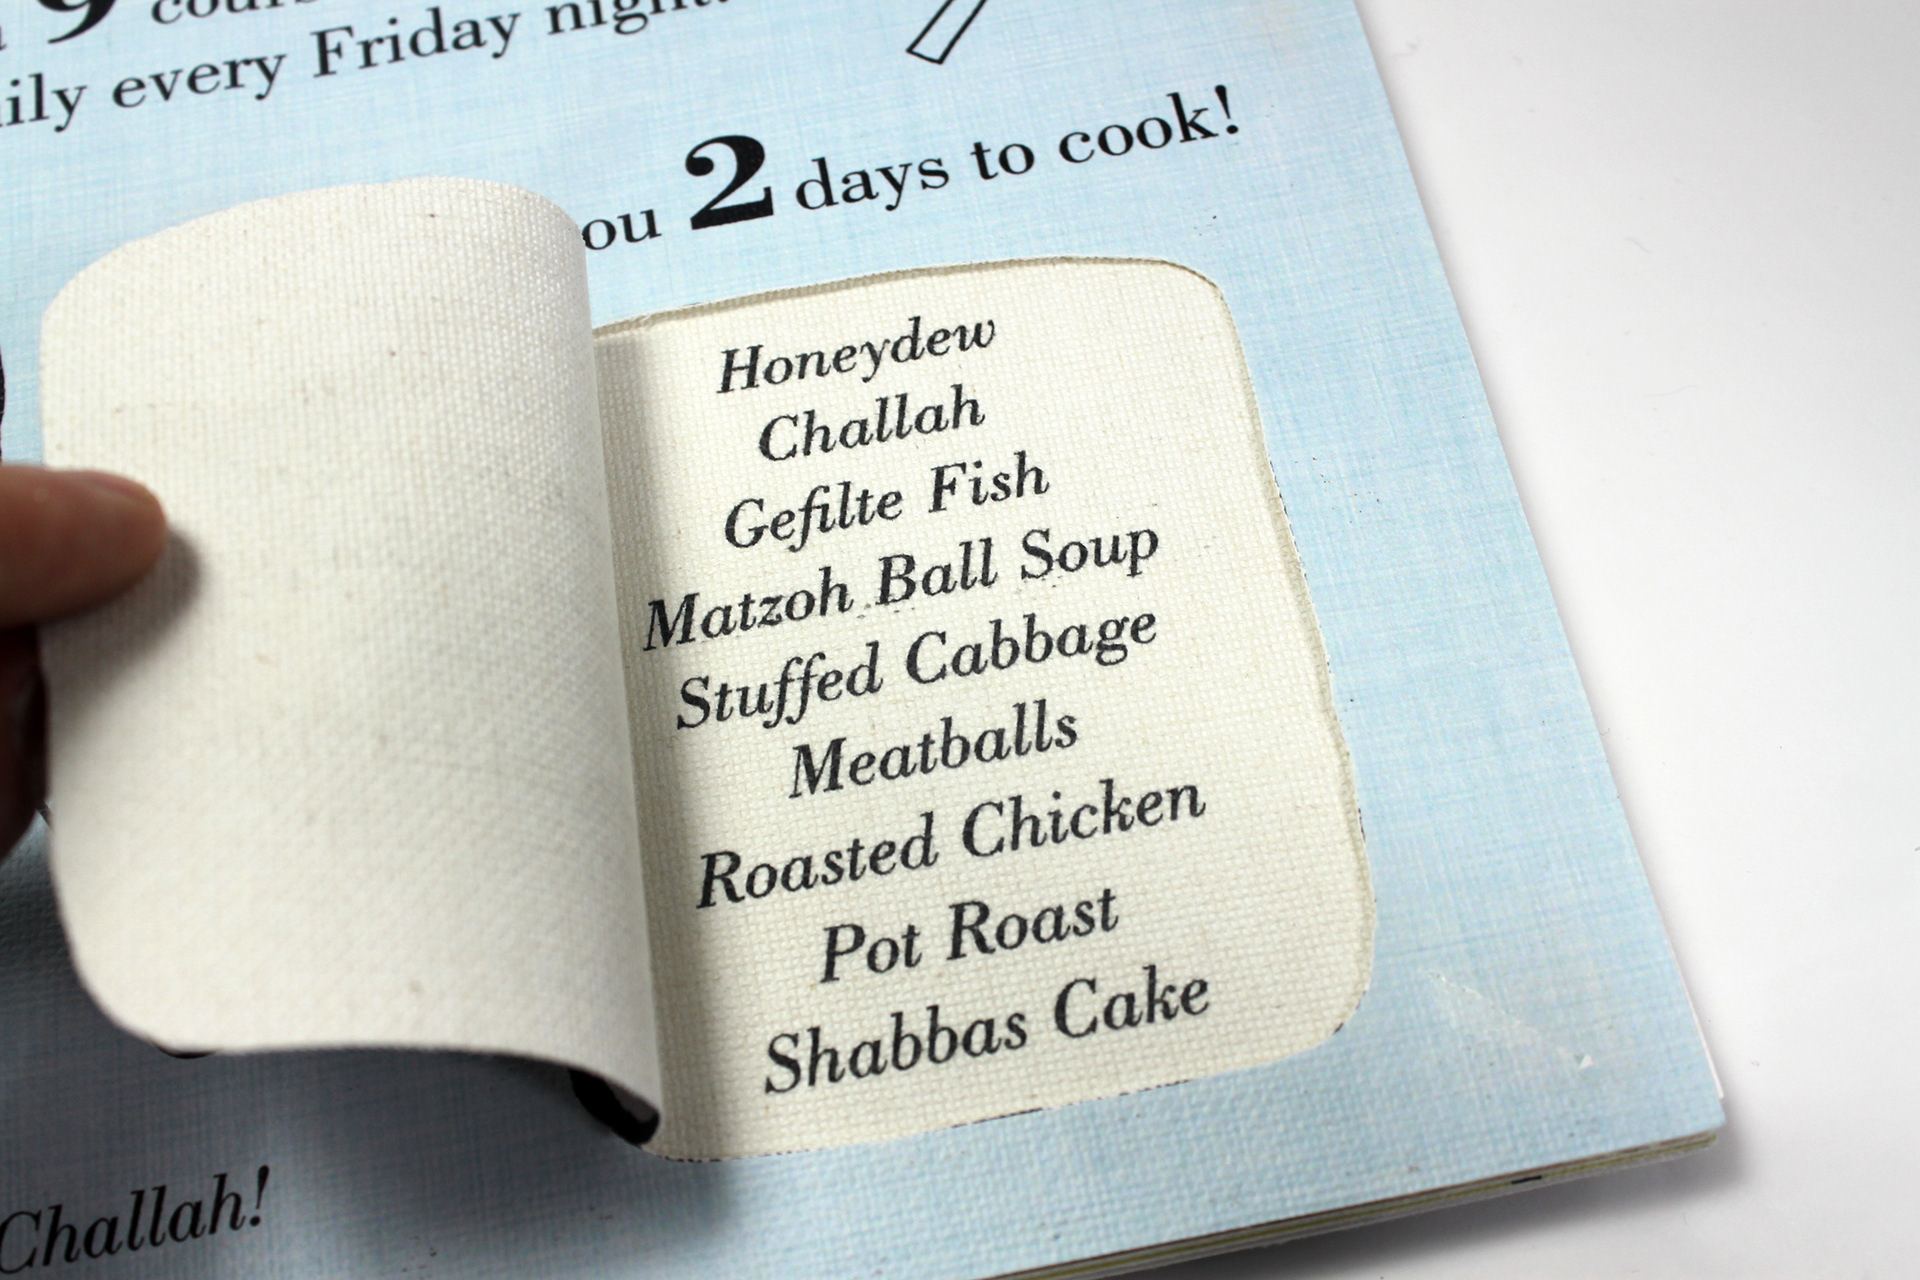 9
every Friday night!
2 days to cook!
Honeydew
Challah
Gefilte Fish
Matzoh Ball Soup
Stuffed Cabbage
Meatballs
Roasted Chicken
Pot Roast
Shabbas Cake
Challah!